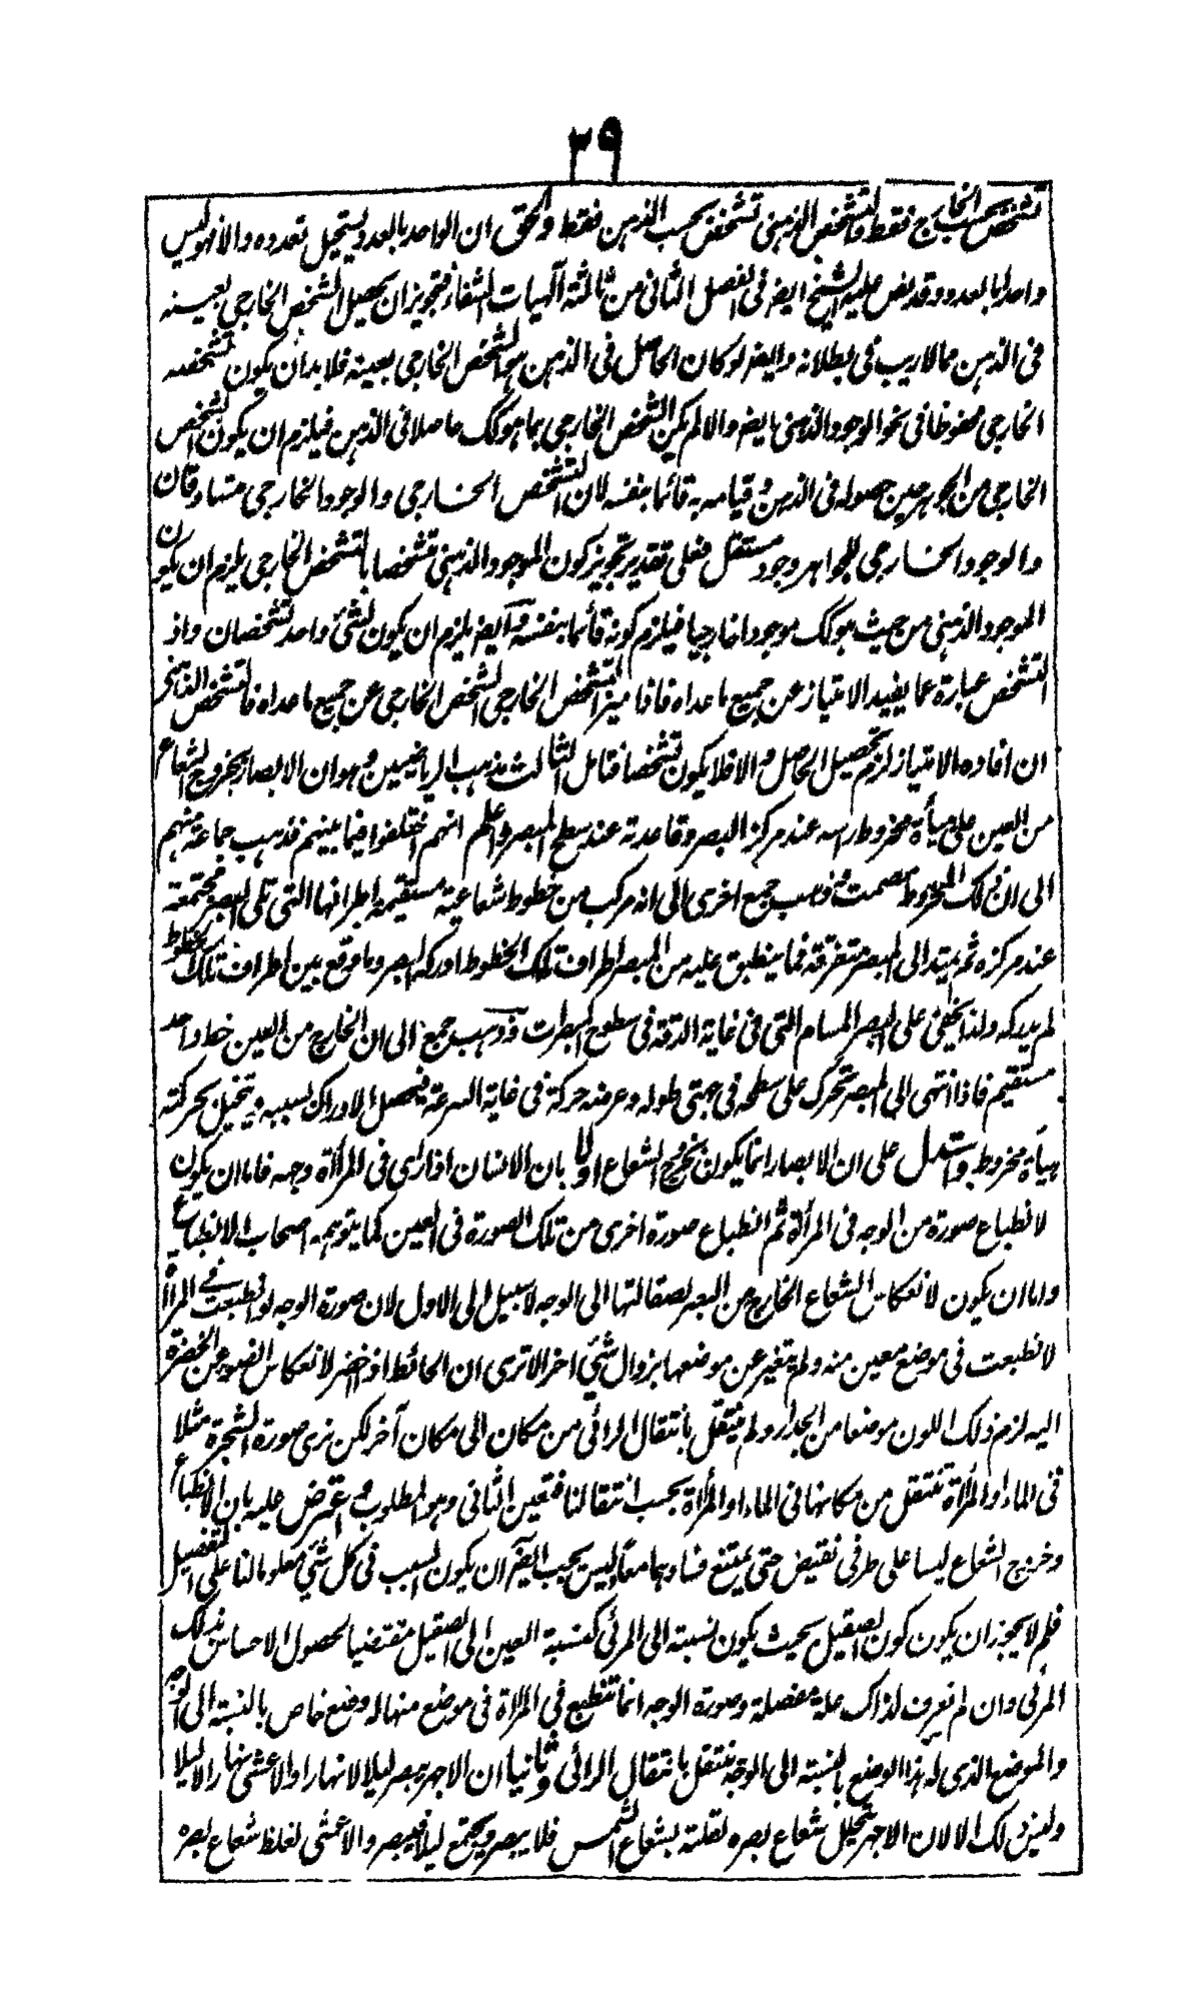 ٣٩
تشخص بحسب الخارج فقط والتشخص الذهنى تشخص بحسب الذهن فقط والحق ان الواحد بالعدد يستحيل تعدده والا فهو ليس
واحدا بالعدد وقد نص عليه الشيخ ايضا فى الفصل الثانى من ثالثة آلهيات الشفاء فتجويز ان يحصل الشخص الخارجى بعينه
فى الذهن مما لا ريب فى بطلانه وايضا لو كان الحاصل فى الذهن هو الشخص الخارجى بعينه فلا بد ان يكون تشخصه
الخارجى محفوظا فى نحو الوجود الذهنى ايضا والا لم يكن الشخص الخارجى بما هو كك حاصلا فى الذهن فيلزم ان يكون الشخص
الخارجى من الجوهر حين حصوله فى الذهن وقيامه به قائما بنفسه لان التشخص الخارجى والوجود الخارجى متساوقان
والوجود الخارجى للجواهر وجود مستقل فعلى تقدير تجويز كون الموجود الذهنى متشخصا بالتشخص الخارجى يلزم ان يكون
الموجود الذهنى من حيث هو كك موجودا خارجيا فيلزم كونه قائما بنفسه وايضا يلزم ان يكون لشئ واحد تشخصان واذ
التشخص عبارة عما يفيد الامتياز عن جميع ما عداه فاذا ميز التشخص الخارجى الشخص الخارجى عن جميع ما عداه فالتشخص الذهنى
ان افاده الامتياز لزم تحصيل الحاصل والا فلا يكون تشخصا فتامل الثالث مذهب الرياضيين وهو ان الابصار بخروج الشعاع
من العين على هيأة مخروط راسه عند مركز البصر وقاعدته عند سطح المبصر واعلم انهم اختلفوا فيما بينهم فذهب جماعة منهم
الى ان ذلك المخروط مصمت وذهب جمع اخرى الى انه مركب من خطوط شعاعية مستقيمة اطرافها التى تلى البصر مجتمعة
عند مركزه ثم يمتد الى المبصر متفرقة فما ينطبق عليه من المبصر اطراف تلك الخطوط ادركه البصر وما وقع بين اطراف تلك الخطوط
لم يدركه ولذا يخفى على البصر المسام التى فى غاية الدقة فى سطوح المبصرات وذهب جمع الى ان الخارج من العين خط واحد
مستقيم فاذا انتهى الى المبصر تحرك على سطحه فى جهتى طوله وعرضه حركة فى غاية السرعة فيحصل الادراك بسببه ويتخيل بحركته
هيأة مخروط واستدل على ان الابصار انما يكون بخروج الشعاع اولا بان الانسان اذا راى فى المرأة وجهه فاما ان يكون
لانطباع صورة من الوجه فى المرأة ثم انطباع صورة اخرى من تلك الصورة فى العين كما يتوهمه اصحاب الانطباع
واما ان يكون لانعكاس الشعاع الخارج من البصر لصقالتها الى الوجه لا سبيل الى الاول لان صورة الوجه لو انطبعت فى المرأة
لانطبعت فى موضع معين منه ولم يتغير عن موضعها بزوال شئ اخر الا ترى ان الحائط اذ اخضر لانعكاس الضوء عن الخضرة
اليه لزم ذلك اللون موضعا من الجدار ولم ينتقل بانتقال الرائى من مكان الى مكان آخر لكن نرى صورة الشجرة مثلا
فى الماء او المرأة تنتقل من مكانها فى الماء او المرأة بحسب انتقالنا فتعين الثانى وهو المطلوب واعترض عليه بان الانطباع
وخروج الشعاع ليسا على طرفى نقيض حتى يمتنع فسادهما معا وليس يجب ايضا ان يكون السبب فى كل شئ معلوما لنا على التفصيل
فلم لا يجوز ان يكون كون الصقيل بحيث يكون نسبته الى المرئى كنسبة العين الى الصقيل مقتضيا لحصول الاحساس بذلك
المرئى وان لم نعرف لذاك علة مفصلة وصورة الوجه انما تنطبع فى المرأة فى موضع منها له وضع خاص بالنسبة الى الوجه
والموضع الذى له هذا الوضع بالنسبة الى الوجه ينتقل بانتقال الرائى وثانيا ان الاجهر يبصر ليلا لا نهارا والاعشى نهارا لا ليلا
وليس ذلك الا لان الاجهر يتحلل شعاع بصره لقلته بشعاع الشمس فلا يبصر ويجتمع ليلا فيبصر والاعشى لغلظ شعاع بصره